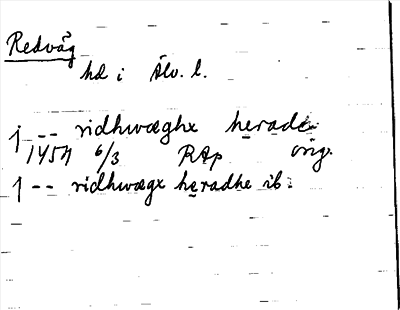 Redväg
hd i Älv. l.
j -- ridhwæghx heradẹ
1454 6/3 RAp orig.
j -- ridhwægx heradhe ib.